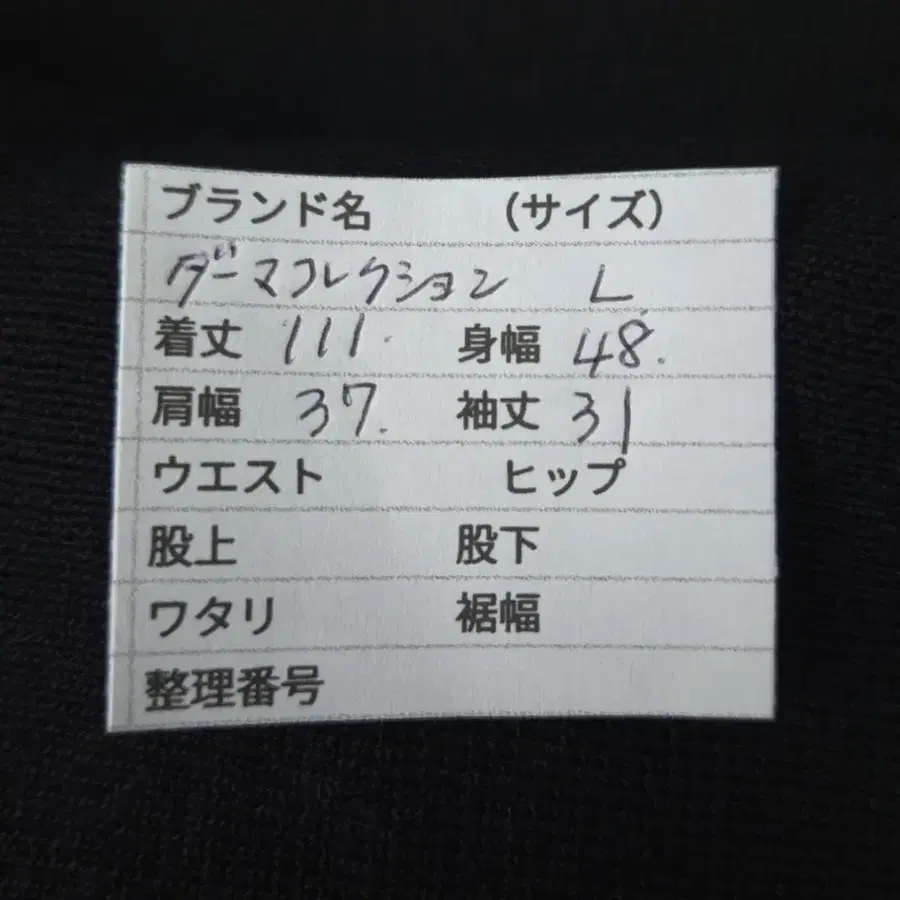 ブランド名 (サイズ)
ダーマコレクション L
着丈 111. 身幅 48.
肩幅 37. 袖丈 31
ウエスト ヒップ
股上 股下
ワタリ 裾幅
整理番号